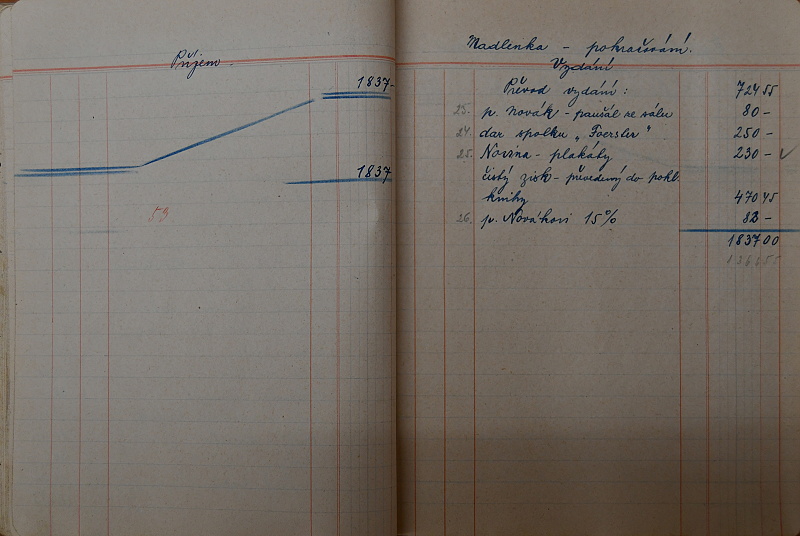 Příjem
1837-
1837
53
Nadlenka - pokračování.
Vydání
Převod vydání: 724 55
25. p. Novák - paušál ze sálu 80 -
24. dar spolku „Foerster" 250 -
25. Novina - plakáty 230 -
čistý zisk - převedený do pokl.
knihy 470 45
26. p. Novákovi 15% 82 -
1837 00